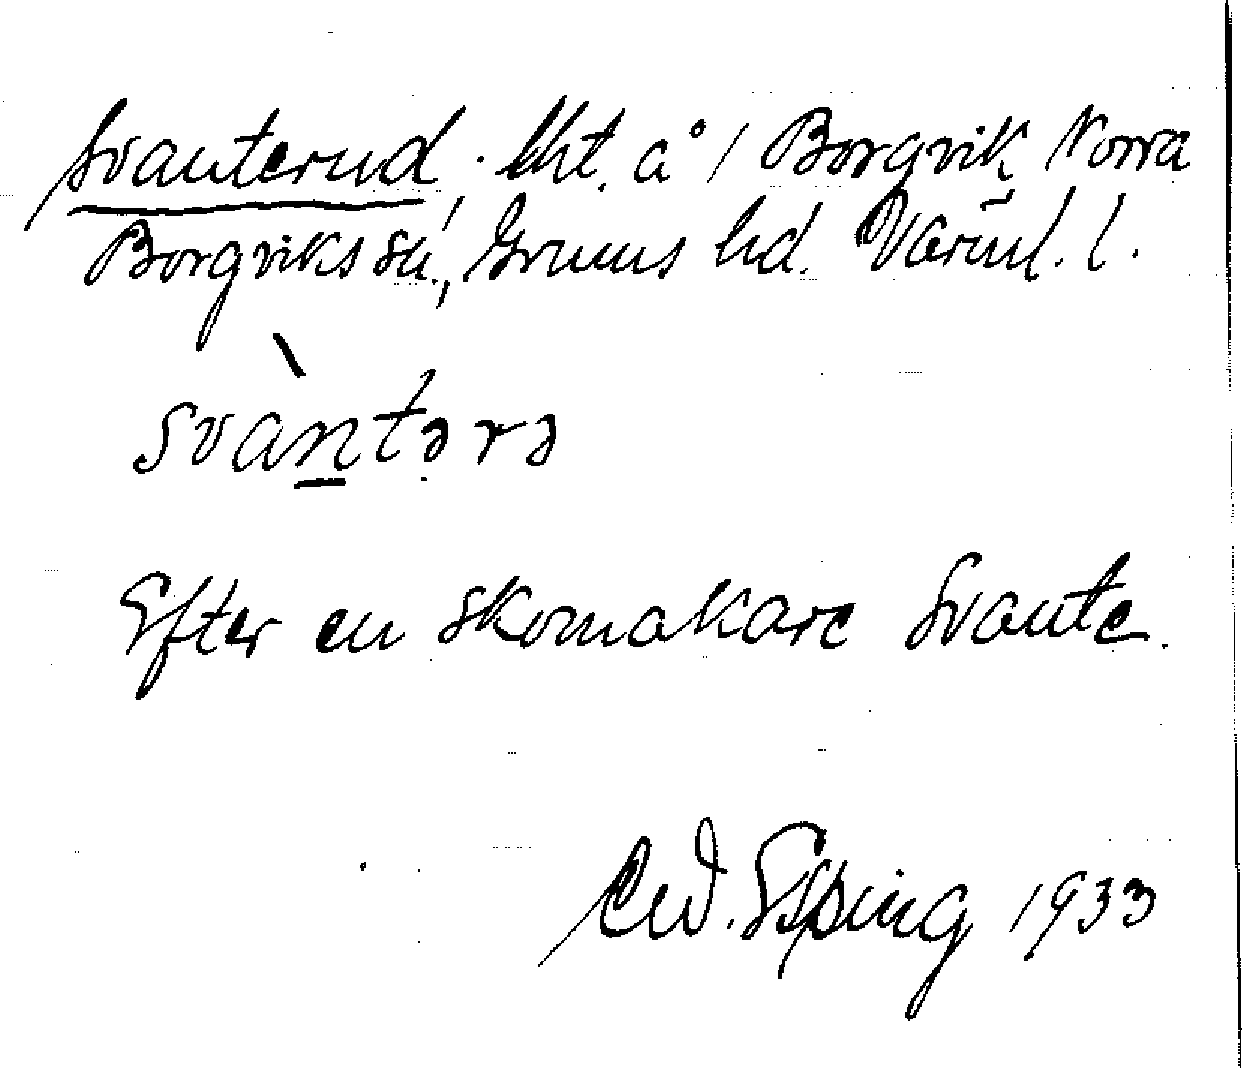 Svanterud, lht. å 1/1 Borgvik Norra
Borgviks sn., Grums hd. Värml. l.
svàntərə
Efter en skomakare Svante.
Evd. Esping 1933